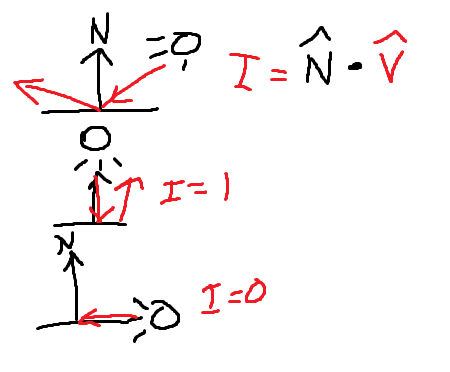 N
I = N̂ · V̂
I = 1
N
I = 0